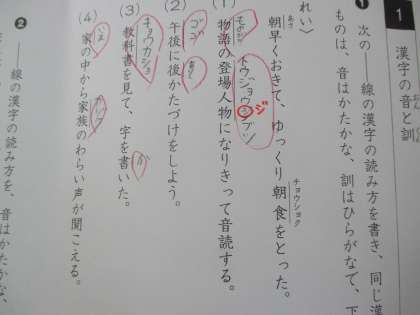 1
漢字の音と訓
❶ 次の──線の漢字の読み方を書き、同じ漢
ものは、音はかたかな、訓はひらがなで、下
れい〉
朝早くおきて、ゆっくり朝食をとった。
あさ
チョウショク
(1) 物語の登場人物になりきって音読する。
トウジョウ
ジ
ブツ
(2) 午後に後かたづけをしよう。
ゴゴ
あと
(3) 教科書を見て、字を書いた。
キョウカショ
か
(4) 家の中から家族のわらい声が聞こえる。
いえ
❷ ──線の漢字の読み方を、音はかたか